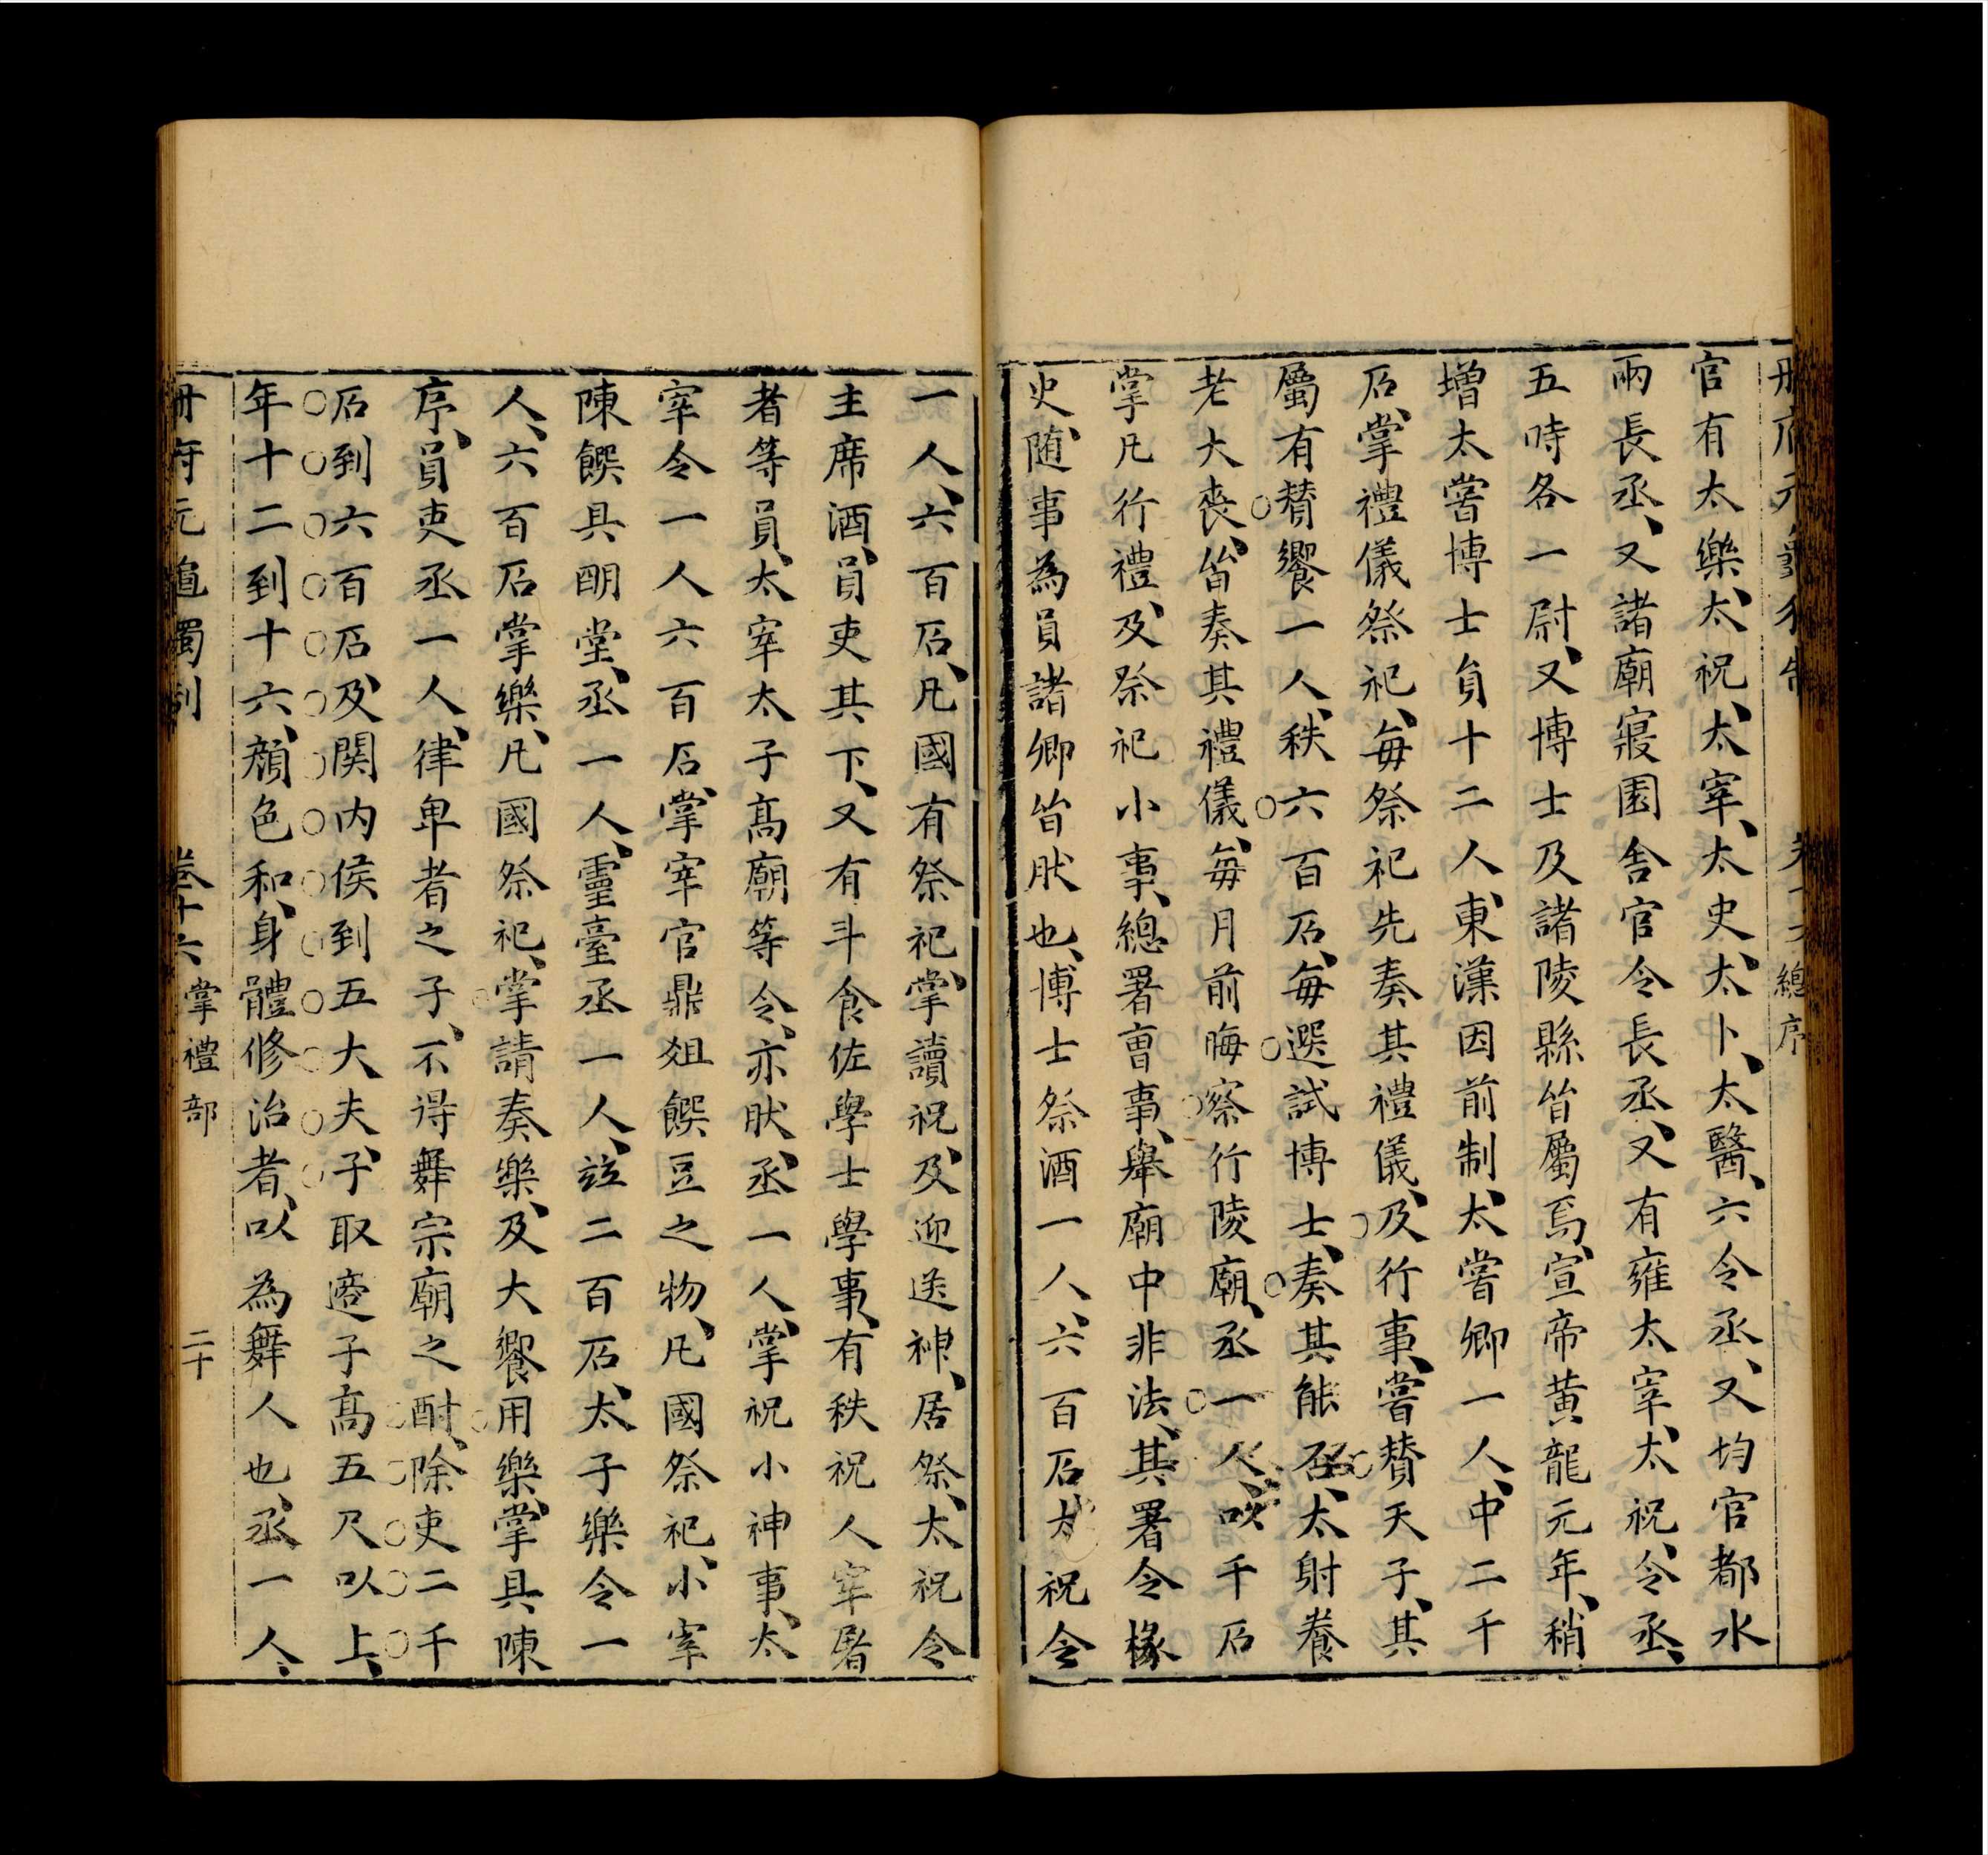 官有太樂、太祝、太宰、太史、太卜、太醫、六令丞、又均官都水
兩長丞、又諸廟寢園舎官令長丞、又有雍太宰、太祝、令丞、
五時各一尉、又博士及諸陵縣皆屬焉、宣帝黄龍元年、稍
增太嘗博士負十二人、東漢因前制、太嘗卿一人、中二千
石、掌禮儀祭祀、每祭祀先奏其禮儀、及行事、嘗賛天子、其
屬有賛饗一人、秩六百石、每選試博士、奏其能否、太射養
老大喪、皆奏其禮儀、每月前晦察行陵廟、丞一人、吹千石
掌凡行禮、及祭祀小事、總署曹事、舉廟中非法、其署令椽
史、随事為員諸卿皆肰也、博士祭酒一人、六百石太祝令
一人、六百石、凡國有祭祀、掌讀祝、及迎送神、居祭、太祝令
主席酒、員吏其下、又有斗食佐學士學事、有秩祝人宰屠
者等員、太宰太子髙廟等令、亦肰、丞一人、掌祝小神事、太
宰令一人六百石、掌宰官鼎爼饌豆之物、凡國祭祀、小宰
陳饌具明堂、丞一人、靈臺丞一人、竝二百石、太子樂令一
人、六百石掌樂、凡國祭祀、掌請奏樂、及大饗用樂、掌具陳
序、員吏丞一人、律卑者之子、不得舞宗廟之酎、除吏二千
石到六百石、及関内侯到五大夫、子取適子髙五尺以上、
年十二到十六、顔色和、身體修治者、以為舞人也、丞一人、
卷十六 掌禮部 二十